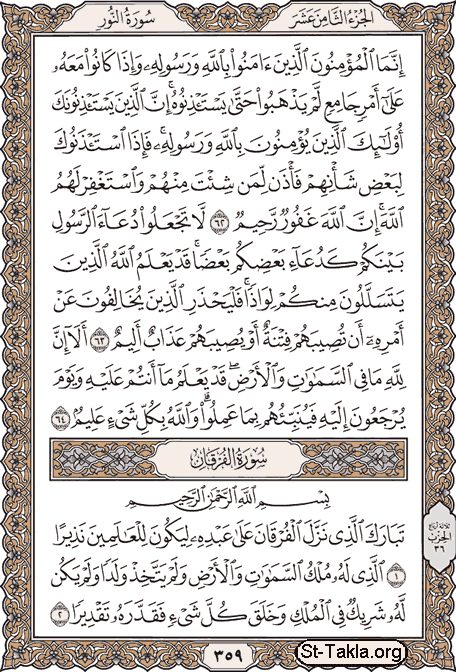 الجزء الثامن عشر
سورة النور
إِنَّمَا ٱلْمُؤْمِنُونَ ٱلَّذِينَ ءَامَنُوا۟ بِٱللَّهِ وَرَسُولِهِۦ وَإِذَا كَانُوا۟ مَعَهُۥ
عَلَىٰٓ أَمْرٍ جَامِعٍ لَّمْ يَذْهَبُوا۟ حَتَّىٰ يَسْتَـْٔذِنُوهُ ۚ إِنَّ ٱلَّذِينَ يَسْتَـْٔذِنُونَكَ
أُو۟لَـٰٓئِكَ ٱلَّذِينَ يُؤْمِنُونَ بِٱللَّهِ وَرَسُولِهِۦ ۚ فَإِذَا ٱسْتَـْٔذَنُوكَ
لِبَعْضِ شَأْنِهِمْ فَأْذَن لِّمَن شِئْتَ مِنْهُمْ وَٱسْتَغْفِرْ لَهُمُ
ٱللَّهَ ۚ إِنَّ ٱللَّهَ غَفُورٌ رَّحِيمٌ ٦٢ لَّا تَجْعَلُوا۟ دُعَآءَ ٱلرَّسُولِ
بَيْنَكُمْ كَدُعَآءِ بَعْضِكُم بَعْضًا ۚ قَدْ يَعْلَمُ ٱللَّهُ ٱلَّذِينَ
يَتَسَلَّلُونَ مِنكُمْ لِوَاذًا ۚ فَلْيَحْذَرِ ٱلَّذِينَ يُخَالِفُونَ عَنْ
أَمْرِهِۦٓ أَن تُصِيبَهُمْ فِتْنَةٌ أَوْ يُصِيبَهُمْ عَذَابٌ أَلِيمٌ ٦٣ أَلَآ إِنَّ
لِلَّهِ مَا فِى ٱلسَّمَـٰوَٰتِ وَٱلْأَرْضِ ۖ قَدْ يَعْلَمُ مَآ أَنتُمْ عَلَيْهِ وَيَوْمَ
يُرْجَعُونَ إِلَيْهِ فَيُنَبِّئُهُم بِمَا عَمِلُوا۟ ۗ وَٱللَّهُ بِكُلِّ شَىْءٍ عَلِيمٌۢ ٦٤
سورة الفرقان
بِسْمِ ٱللَّهِ ٱلرَّحْمَـٰنِ ٱلرَّحِيمِ
تَبَارَكَ ٱلَّذِى نَزَّلَ ٱلْفُرْقَانَ عَلَىٰ عَبْدِهِۦ لِيَكُونَ لِلْعَـٰلَمِينَ نَذِيرًا
١ ٱلَّذِى لَهُۥ مُلْكُ ٱلسَّمَـٰوَٰتِ وَٱلْأَرْضِ وَلَمْ يَتَّخِذْ وَلَدًا وَلَمْ يَكُن
لَّهُۥ شَرِيكٌ فِى ٱلْمُلْكِ وَخَلَقَ كُلَّ شَىْءٍ فَقَدَّرَهُۥ تَقْدِيرًا ٢
ثلاثة أرباع
الحزب
٣٦
٣٥٩
St-Takla.org